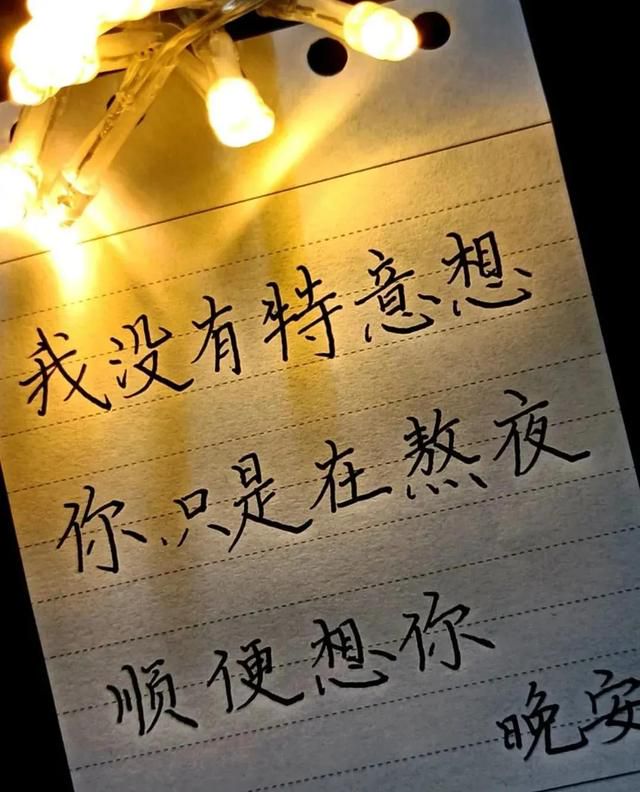 我没有特意想
你,只是在熬夜
顺便想你
晚安